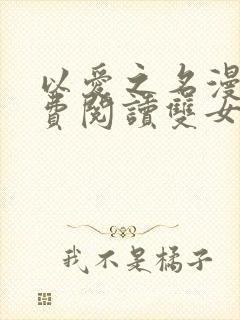 以愛之名漫
費閱讀雙女
我不是橘子